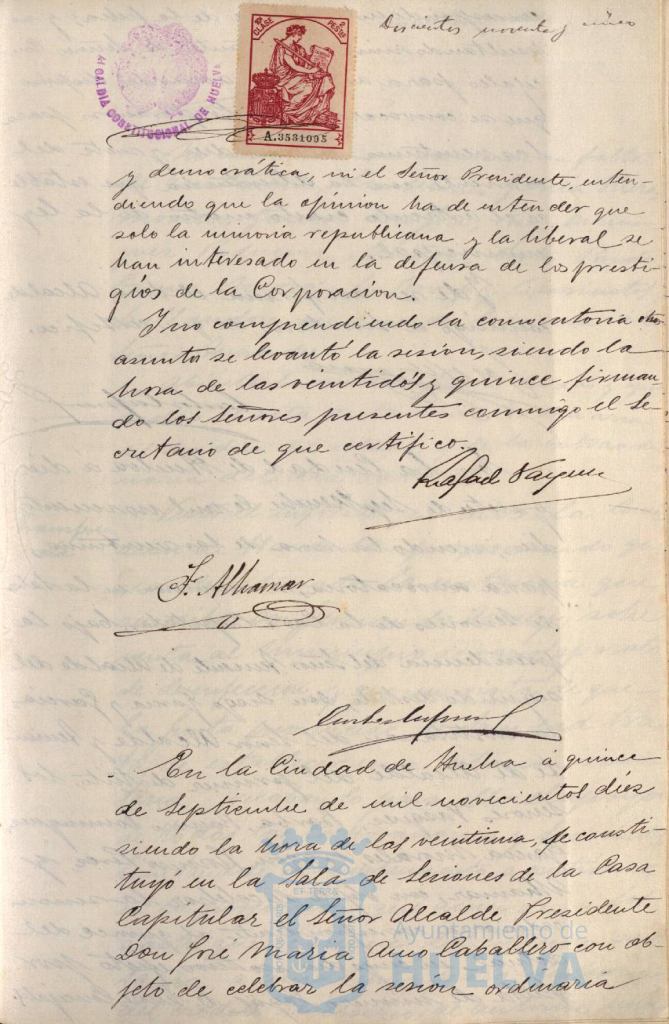 Doscientos noventa y cinco
10ª CLASE
2 PESETAS
A.3531095
ALCALDIA CONSTITUCIONAL DE HUELVA
y democrática, ni el Señor Presidente, enten-
diendo que la opinion ha de entender que
solo la minoria republicana y la liberal se
han interesado en la defensa de los presti-
gios de la Corporacion.
Y no comprendiendo la convocatoria otro
asunto se levantó la sesion, siendo la
hora de las veintidós y quince firman-
do los Señores presentes conmigo el Se-
cretario de que certifico.
Rafael
F. Alhamar
En la Ciudad de Huelva á quince
de Septiembre de mil novecientos diez
siendo la hora de las veintiuna, se consti-
tuyó en la Sala de Sesiones de la Casa
Capitular el Señor Alcalde Presidente
Don José Maria Amo Caballero con ob-
jeto de celebrar la sesión ordinaria
Ayuntamiento de
HUELVA